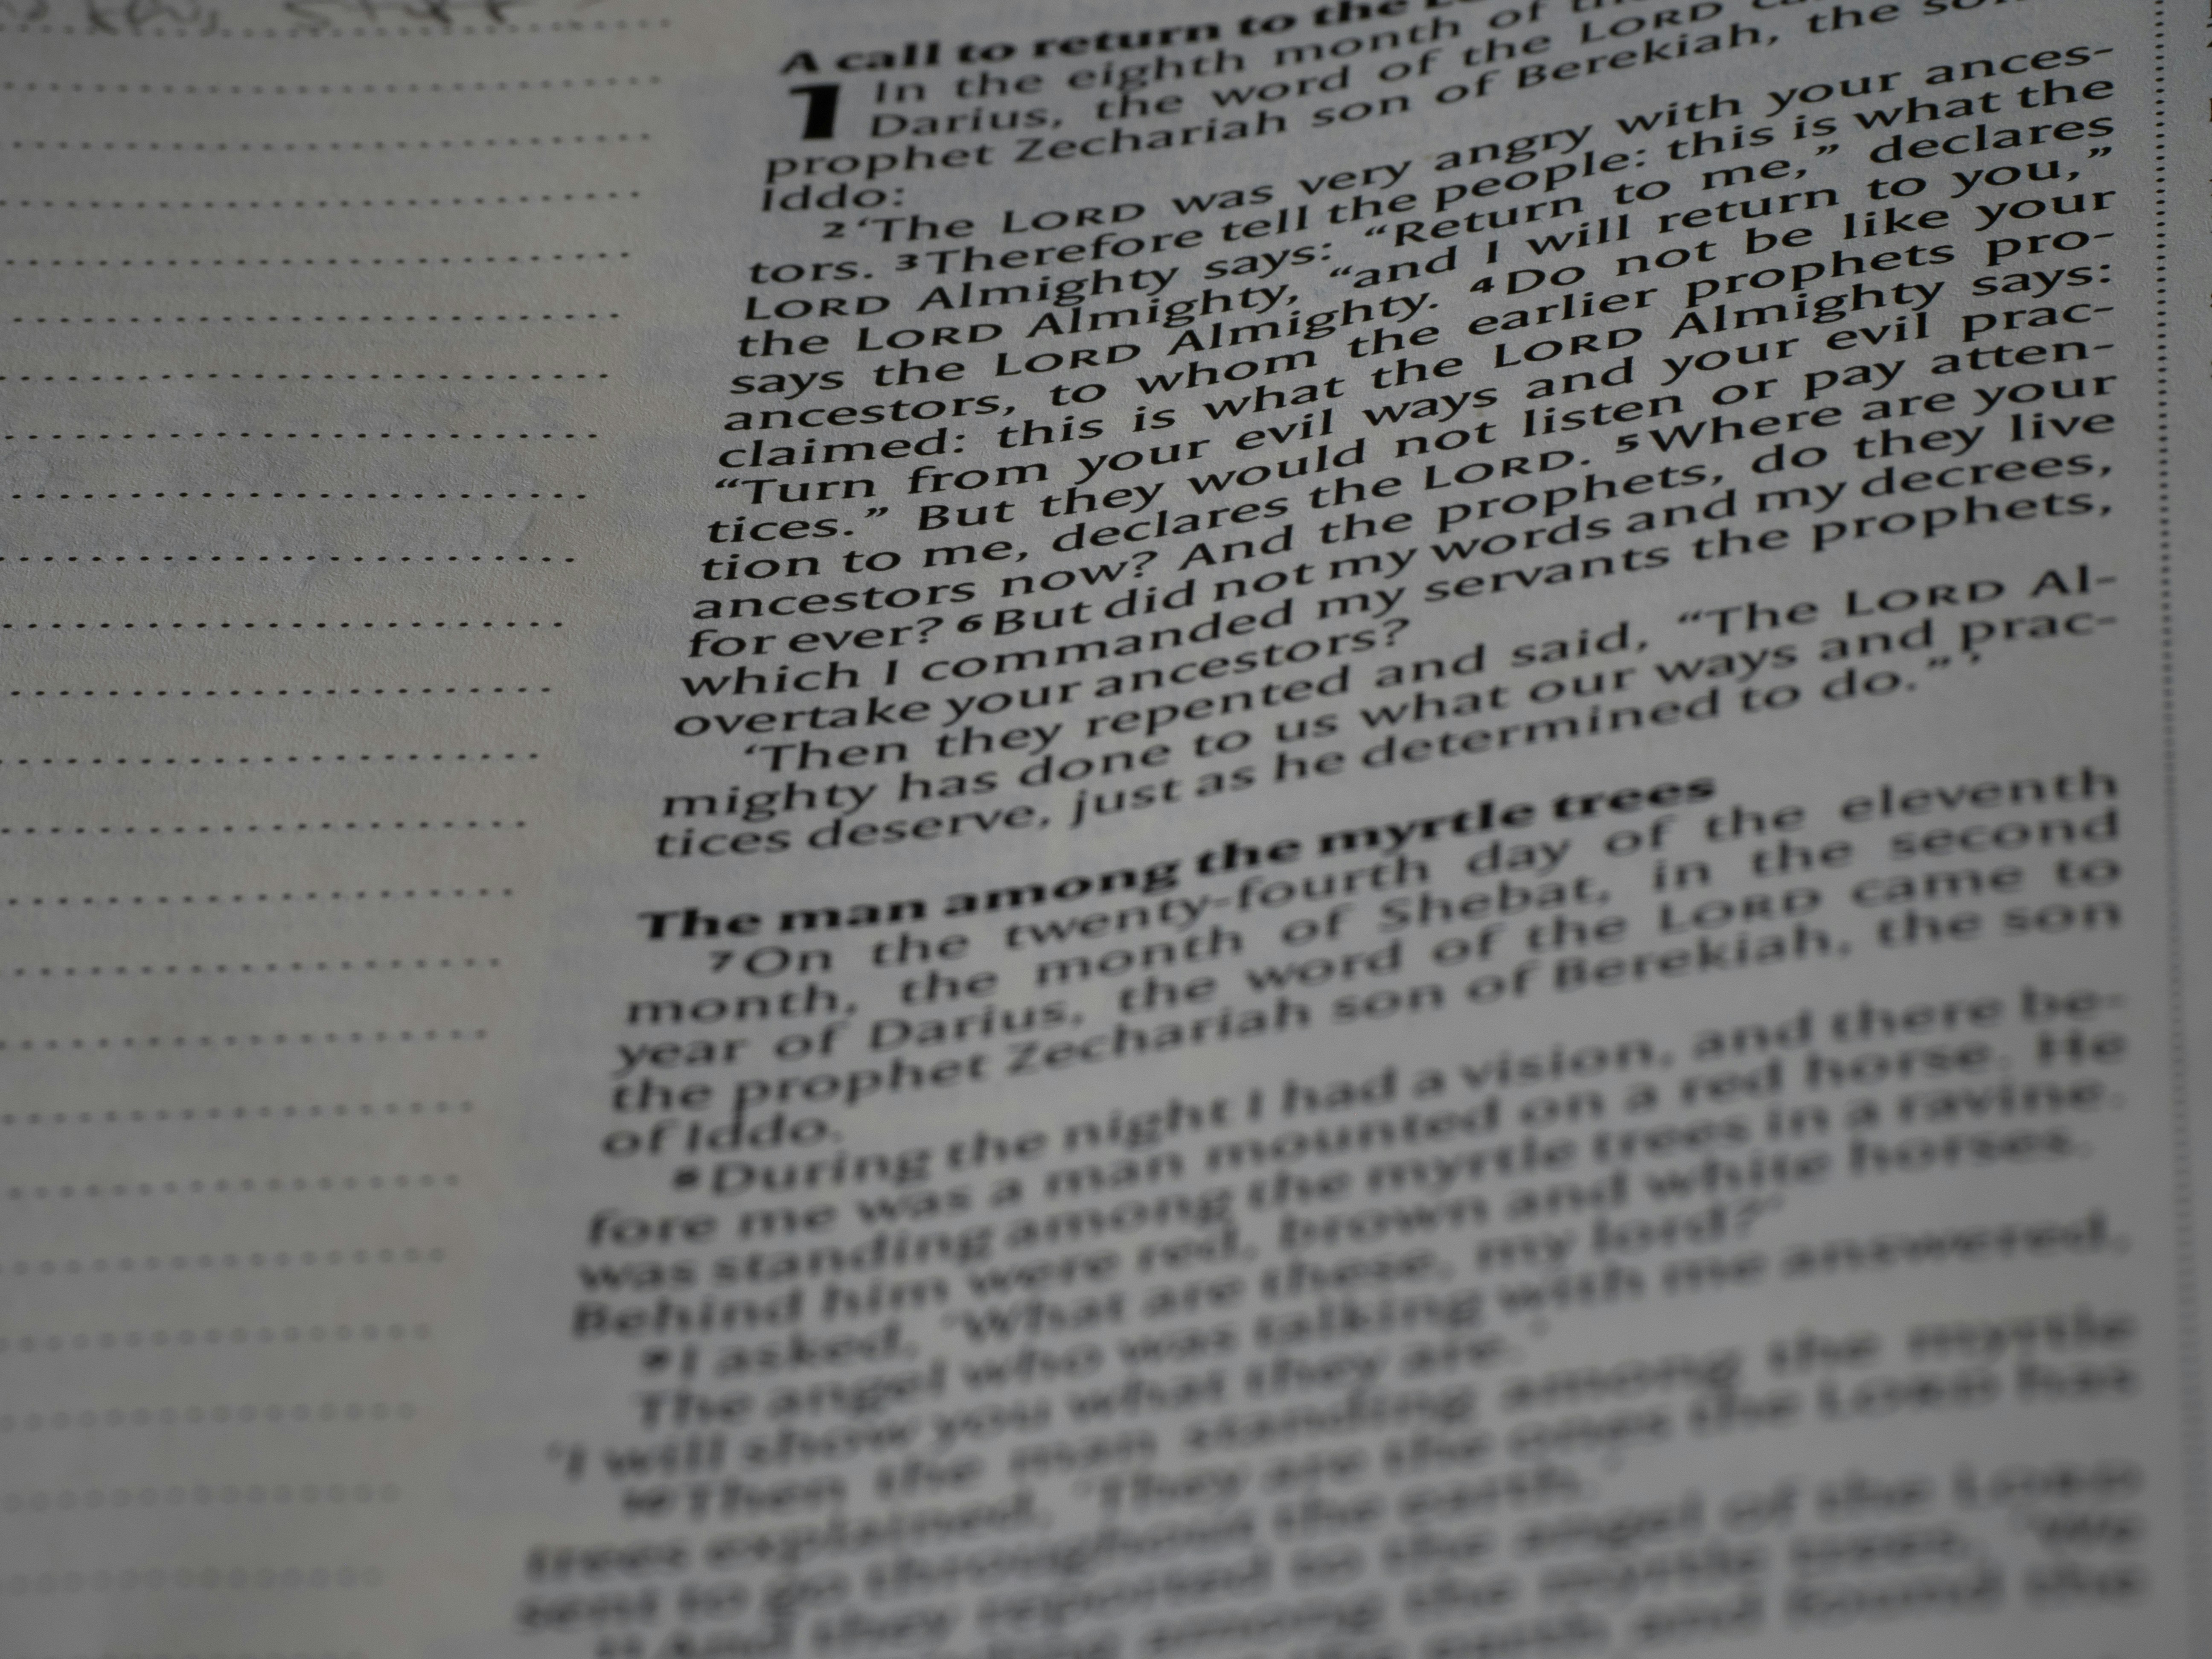 A call to return to the
1 In the eighth month of
Darius, the word of the LORD
prophet Zechariah son of Berekiah, the son
Iddo:
2 ‘The LORD was very angry with your ances-
tors. 3 Therefore tell the people: this is what the
LORD Almighty says: “Return to me,” declares
the LORD Almighty, “and I will return to you,”
says the LORD Almighty. 4 Do not be like your
ancestors, to whom the earlier prophets pro-
claimed: this is what the LORD Almighty says:
“Turn from your evil ways and your evil prac-
tices.” But they would not listen or pay atten-
tion to me, declares the LORD. 5 Where are your
ancestors now? And the prophets, do they live
for ever? 6 But did not my words and my decrees,
which I commanded my servants the prophets,
overtake your ancestors?
‘Then they repented and said, “The LORD Al-
mighty has done to us what our ways and prac-
tices deserve, just as he determined to do.” ’
The man among the myrtle trees
7 On the twenty-fourth day of the eleventh
month, the month of Shebat, in the second
year of Darius, the word of the LORD came to
the prophet Zechariah son of Berekiah, the son
of Iddo.
8 During the night I had a vision, and there be-
fore me was a man mounted on a red horse. He
was standing among the myrtle trees in a ravine.
Behind him were red, brown and white horses.
9 I asked, ‘What are these, my lord?’
The angel who was talking with me answered,
‘I will show you what they are.’
10 Then the man standing among the myrtle
trees explained, ‘They are the ones the LORD has
sent to go throughout the earth.’
11 And they reported to the angel of the LORD
among the myrtle trees, ‘We
earth and found the